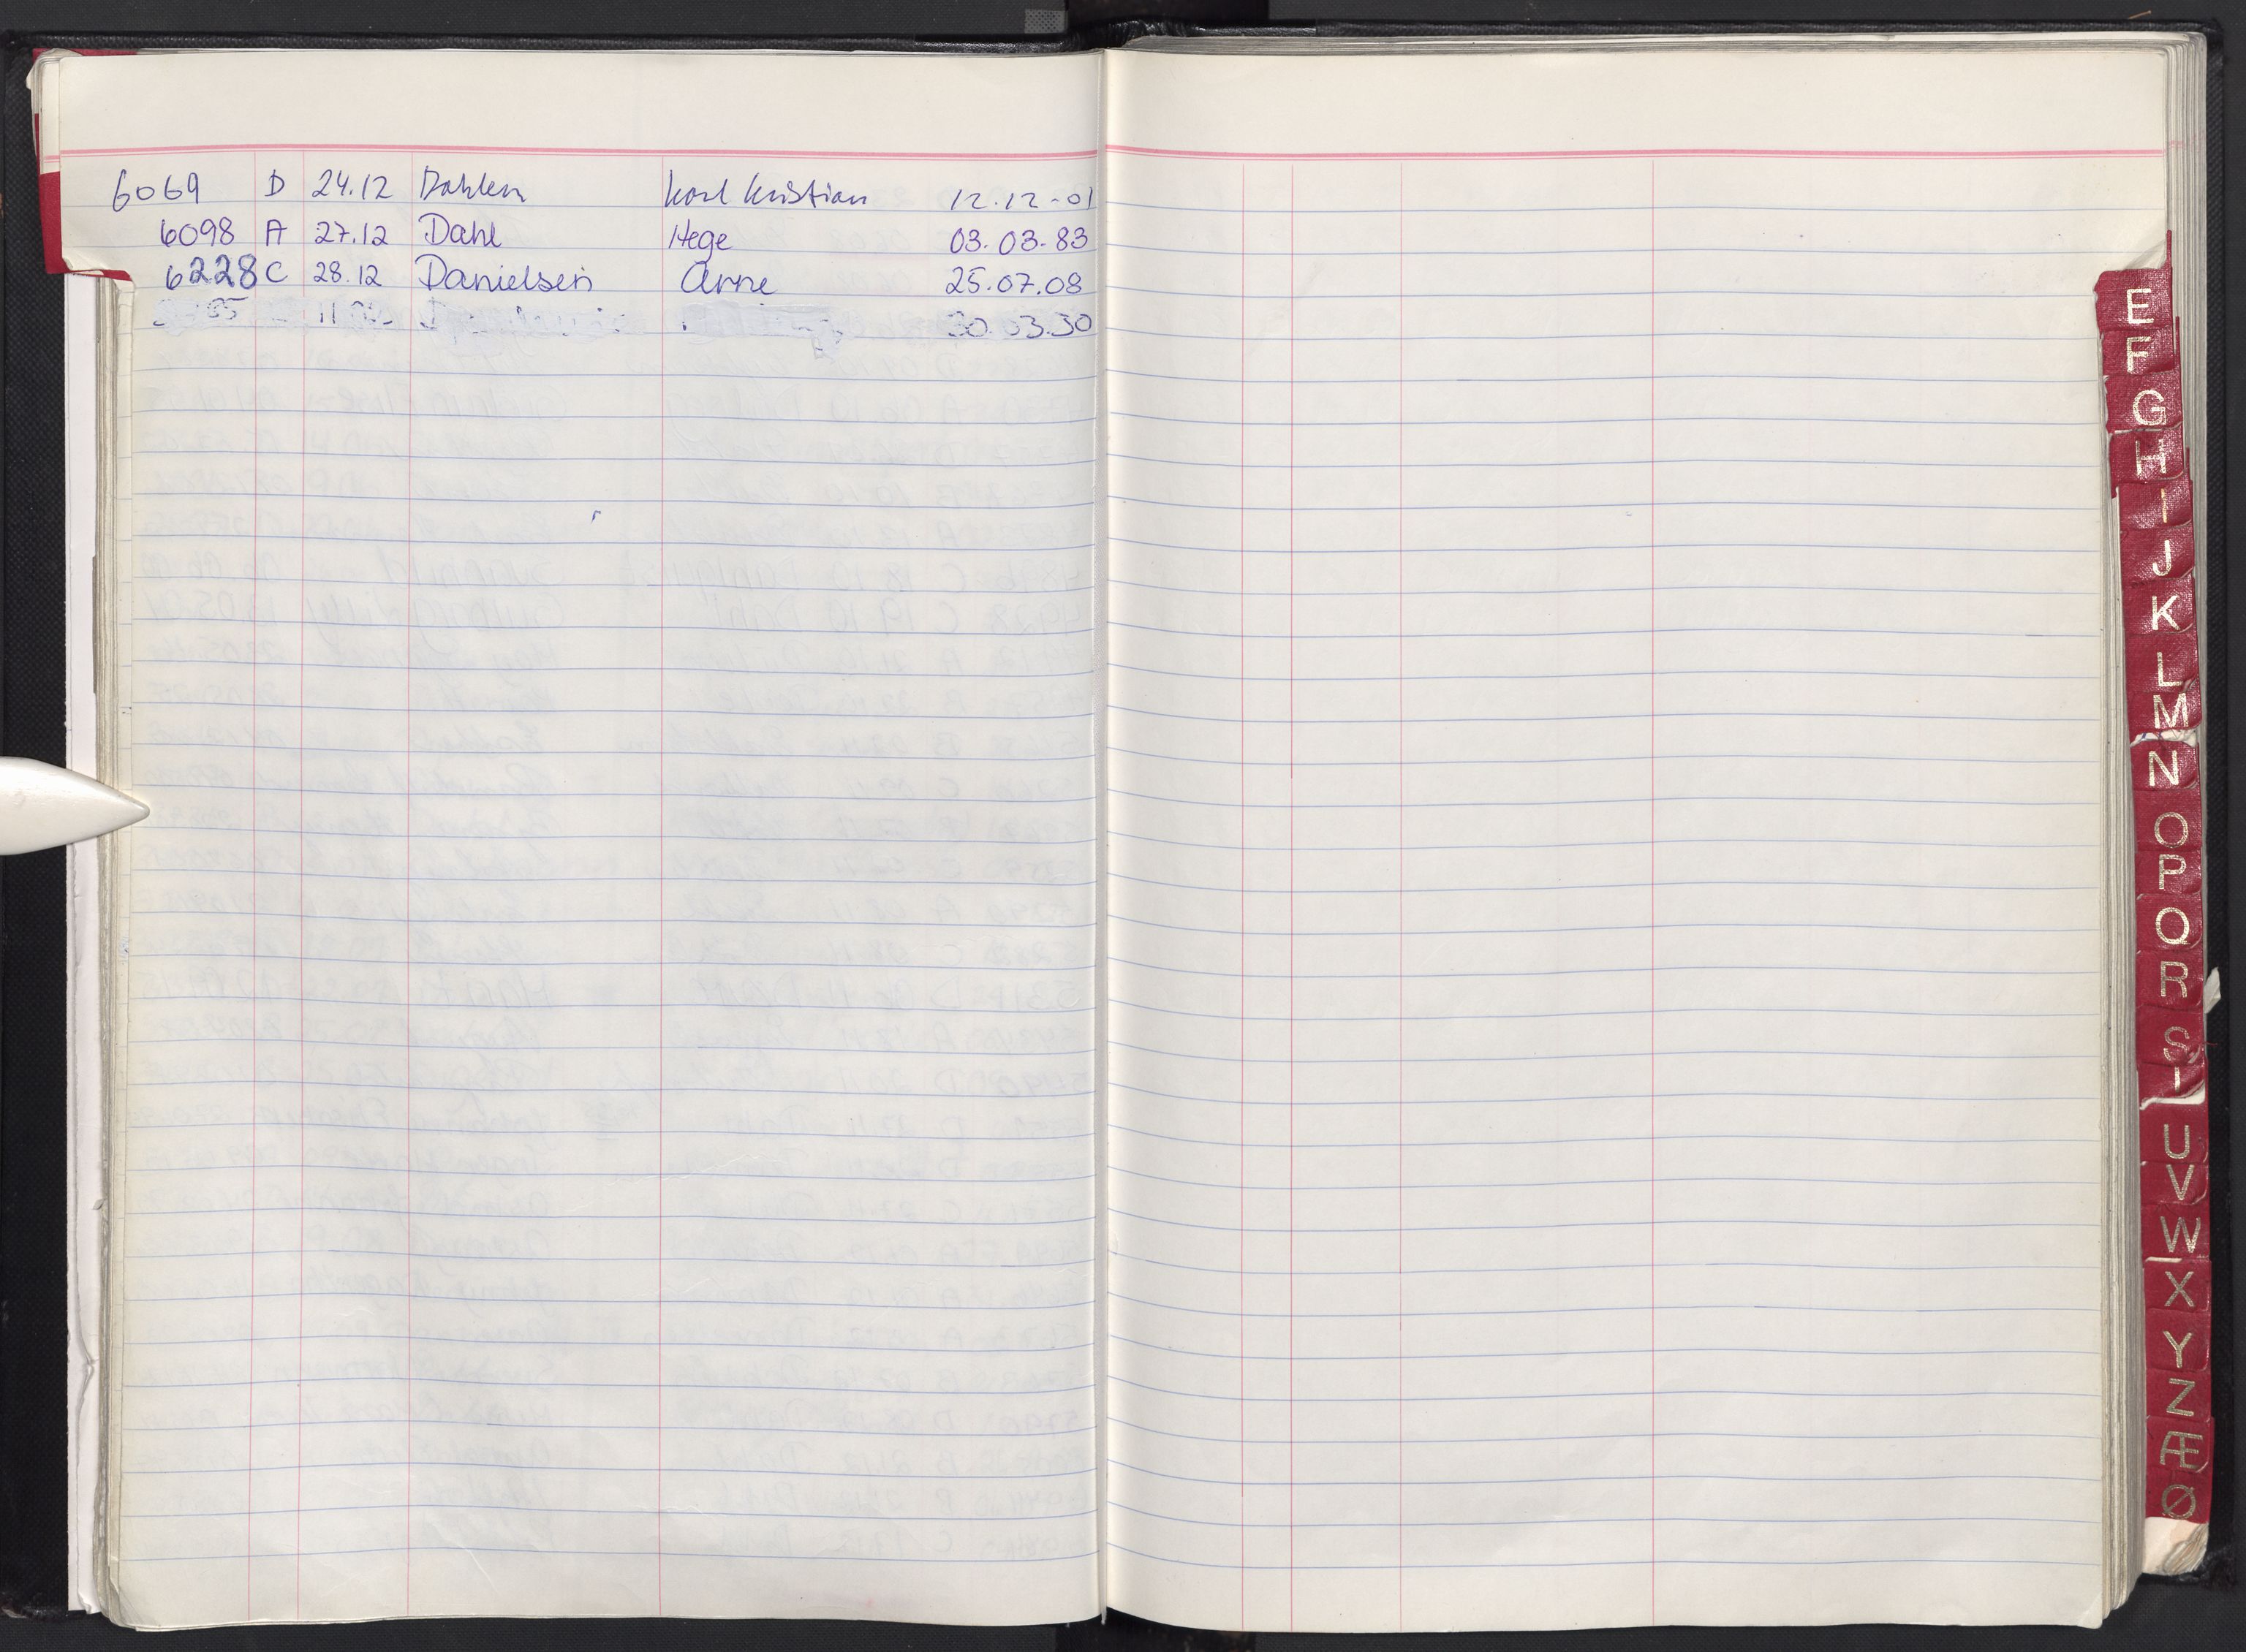 6069 D 24.12 Dahlen Karl Kristian 12.12-01
6098 A 27.12 Dahl Hege 03.03.83
6228 C 28.12 Danielsen Arne 25.07.08
30.03.30
E
F
G
H
I
J
K
L
M
N
O
P
Q
R
S
U
V
W
X
Y
Z
Æ
Ø